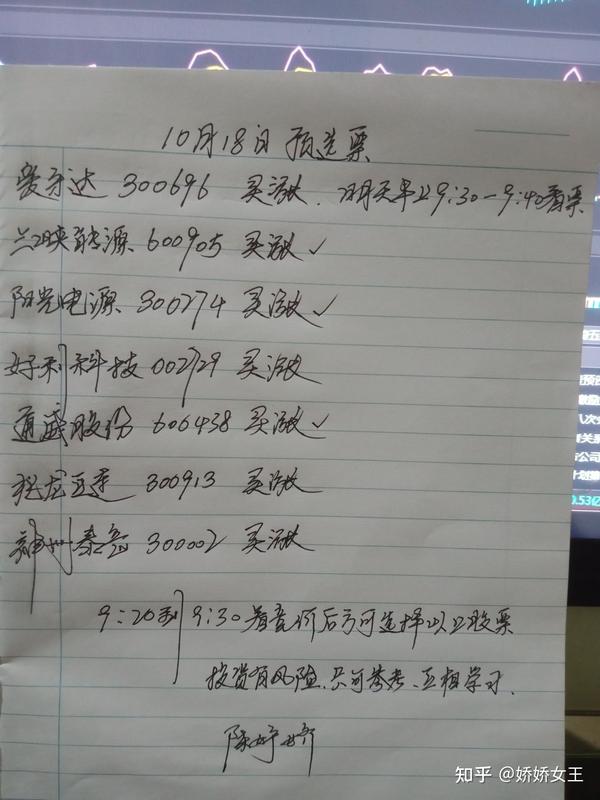 10月18日 预选票
爱乐达 300696 买涨. 明天早上9:30-9:40看票
三峡能源 600905 买涨✓
阳光电源 300274 买涨✓
好利科技 002729 买涨
通威股份 600438 买涨✓
兆龙互连 300913 买涨
神州泰岳 300002 买涨
9:20到9:30看竞价后方可选择以上股票
投资有风险.只可参考、互相学习.
陈婷娇
知乎 @娇娇女王
0.53亿